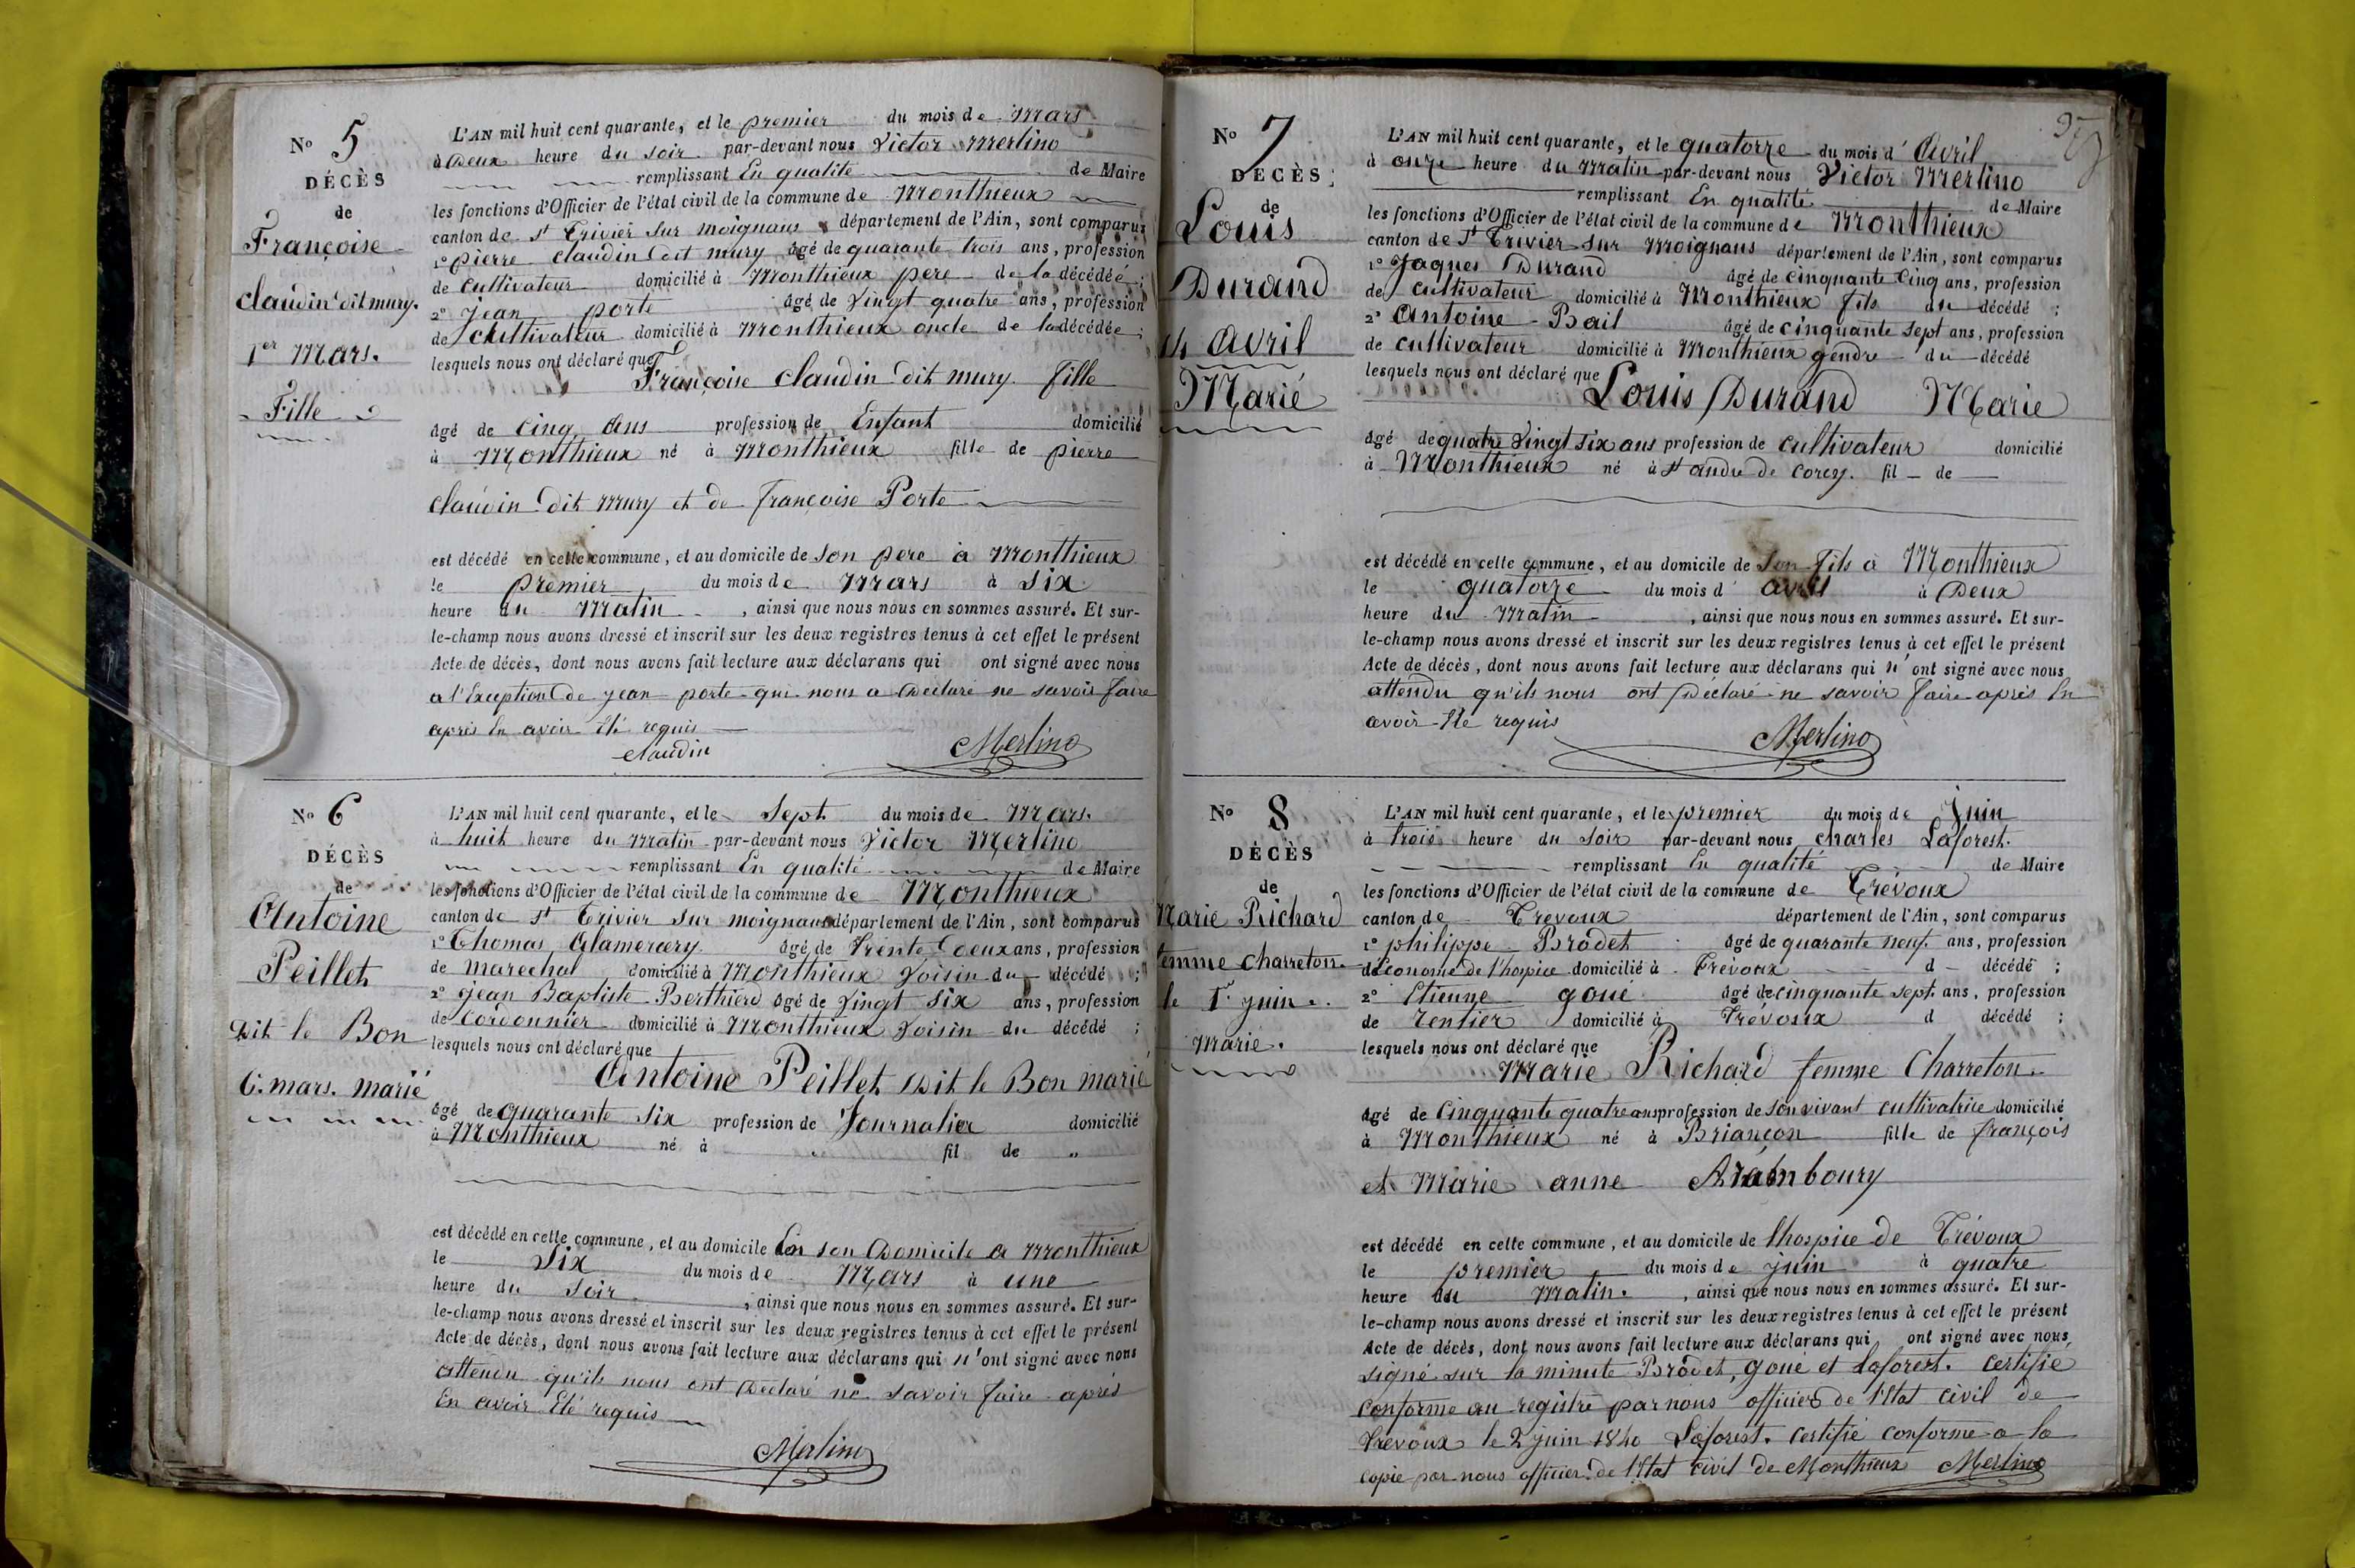 N° 5
DÉCÈS
de
Françoise
claudin dit mury.
1er Mars.
Fille
L'AN mil huit cent quarante, et le premier du mois de Mars
à Deux heure du soir par-devant nous Victor Merlino
remplissant En qualité de Maire
les fonctions d'Officier de l'état civil de la commune de Monthieux
canton de St Trivier sur moignans département de l'Ain, sont comparus
1° pierre claudin dit mury âgé de quarante trois ans, profession
de cultivateur domicilié à Monthieux pere de la décédée ;
2° jean porte âgé de Vingt quatre ans, profession
de Cultivateur domicilié à Monthieux oncle de la décédée ;
lesquels nous ont déclaré que
Françoise claudin dit mury fille
âgé de cinq ans profession de Enfant domicilié
à Monthieux né à Monthieux fille de pierre
claudin dit mury et de françoise Porte
est décédé en cette commune, et au domicile de son pere à Monthieux
le premier du mois de Mars à six
heure du Matin, ainsi que nous nous en sommes assuré. Et sur-
le-champ nous avons dressé et inscrit sur les deux registres tenus à cet effet le présent
Acte de décès, dont nous avons fait lecture aux déclarans qui ont signé avec nous
a l'Exception de jean porte qui nous a Déclaré ne savoir faire
après En avoir Eté requis
claudin Merlino
N° 6
DÉCÈS
de
Antoine
Peillet
Dit le Bon
6. mars. marié
L'AN mil huit cent quarante, et le Sept du mois de Mars.
à huit heure du Matin par-devant nous Victor Merlino
remplissant En qualité de Maire
les fonctions d'Officier de l'état civil de la commune de Monthieux
canton de St Trivier sur moignans département de l'Ain, sont comparus
1° Thomas Alamercery âgé de trente Deux ans, profession
de Marechal domicilié à Monthieux Voisin du décédé ;
2° jean Baptiste Berthierd âgé de Vingt Six ans, profession
de Cordonnier domicilié à Monthieux Voisin du décédé ;
lesquels nous ont déclaré que
Antoine Peillet Dit le Bon marié
âgé de quarante six profession de Journalier domicilié
à Monthieux né à " fil de "
est décédé en cette commune, et au domicile En son Domicile a Monthieux
le Six du mois de Mars à une
heure du Soir, ainsi que nous nous en sommes assuré. Et sur-
le-champ nous avons dressé et inscrit sur les deux registres tenus à cet effet le présent
Acte de décès, dont nous avons fait lecture aux déclarans qui n'ont signé avec nous
attendu qu'ils nous ont Déclaré ne savoir faire après
En avoir Eté requis
Merlino
N° 7
DÉCÈS
de
Louis
Durand
14 Avril
Marié
L'AN mil huit cent quarante, et le quatorze du mois d'Avril
à onze heure du Matin par-devant nous Victor Merlino
remplissant En qualité de Maire
les fonctions d'Officier de l'état civil de la commune de Monthieux
canton de St Trivier sur Moignans département de l'Ain, sont comparus
1° Jaques Durand âgé de cinquante cinq ans, profession
de cultivateur domicilié à Monthieux fils du décédé ;
2° Antoine Bail âgé de cinquante sept ans, profession
de cultivateur domicilié à Monthieux gendre du décédé
lesquels nous ont déclaré que
Louis Durand Marié
âgé de quatre Vingt six ans profession de cultivateur domicilié
à Monthieux né à St andre de corcy. fil de
est décédé en cette commune, et au domicile de son fils a Monthieux
le quatorze du mois d'avril à Deux
heure du Matin, ainsi que nous nous en sommes assuré. Et sur-
le-champ nous avons dressé et inscrit sur les deux registres tenus à cet effet le présent
Acte de décès, dont nous avons fait lecture aux déclarans qui n'ont signé avec nous
attendu qu'ils nous ont Déclaré ne savoir faire après En
avoir Eté requis
Merlino
N° 8
DÉCÈS
de
Marie Richard
femme charreton.
le 1er juin.
Marié.
L'AN mil huit cent quarante, et le premier du mois de juin
à trois heure du soir par-devant nous charles Laforest.
remplissant En qualité de Maire
les fonctions d'Officier de l'état civil de la commune de Trévoux
canton de Trevoux département de l'Ain, sont comparus
1° philippe Brodet âgé de quarante neuf ans, profession
d'économe de l'hospice domicilié à Trévoux d décédé ;
2° Etienne goué âgé de cinquante sept ans, profession
de rentier domicilié à Trévoux d décédé ;
lesquels nous ont déclaré que
Marie Richard femme Charreton.
âgé de Cinquante quatre ans profession de son vivant cultivatrice domicilié
à Monthieux né à Briançon fille de françois
et Marie anne Aramboury
est décédé en cette commune, et au domicile de l'hospice de Trévoux
le premier du mois de juin à quatre
heure du Matin., ainsi que nous nous en sommes assuré. Et sur-
le-champ nous avons dressé et inscrit sur les deux registres tenus à cet effet le présent
Acte de décès, dont nous avons fait lecture aux déclarans qui ont signé avec nous
signé sur la minute Brodet, goué et Laforest. certifié
conforme au registre par nous officier de l'Etat civil de
Trevoux le 2 juin 1840 Laforest. certifié conforme a la
copie par nous officier de l'Etat civil de Monthieux Merlino